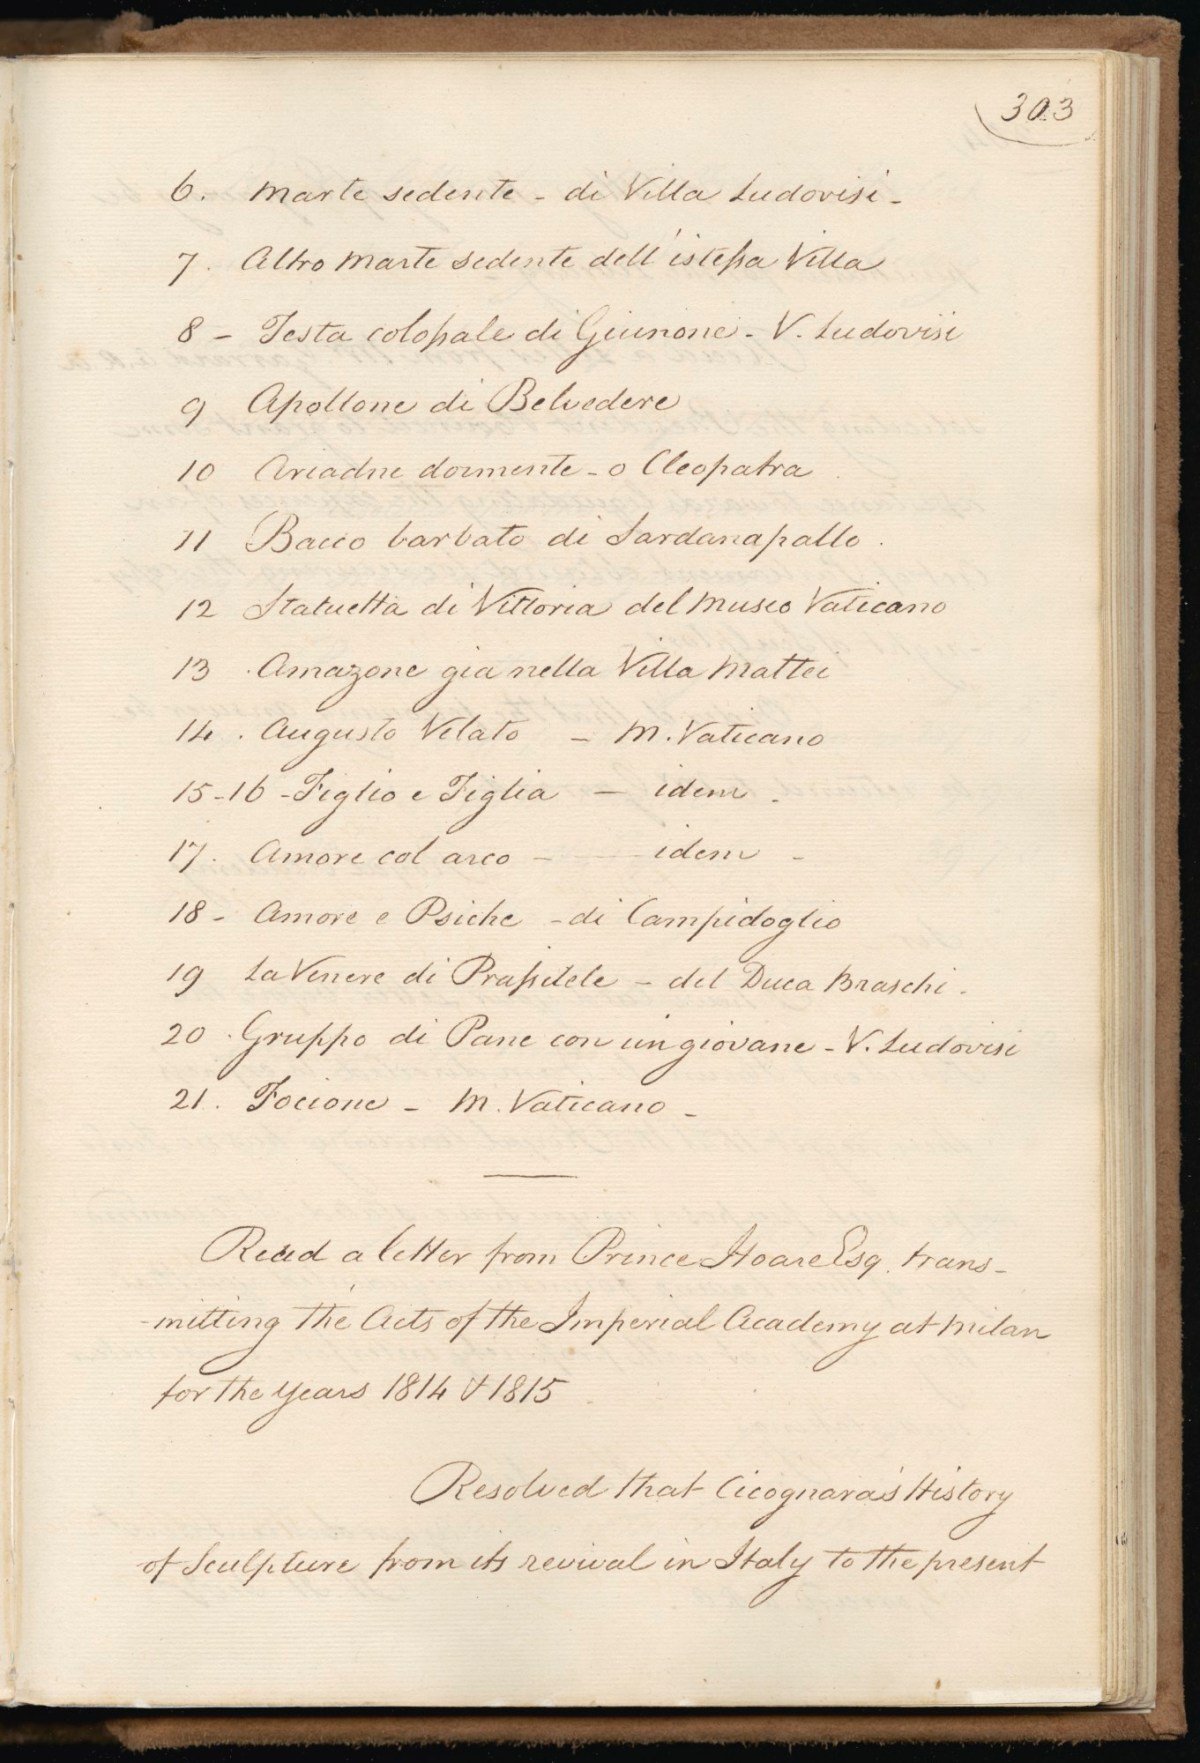 303
6. Marte sedente - di Villa Ludovisi -
7. Altro Marte sedente dell'istessa Villa
8 - Testa colossale di Giunone - V. Ludovisi
9 Apollone di Belvedere
10 Ariadne dormente - o Cleopatra
11 Bacco barbato di Sardanapallo.
12 Statuetta di Vittoria del Museo Vaticano
13. Amazone gia nella Villa Mattei
14. Augusto Velato - M. Vaticano
15-16 - Figlio e Figlia - idem -
17. Amore col arco - idem -
18 - Amore e Psiche - di Campidoglio
19 La Venere di Prassitele - del Duca Braschi.
20. Gruppo di Pane con un giovane - V. Ludovisi
21. Focione - M. Vaticano -
Read a letter from Prince Hoare Esq. trans-
-mitting the Acts of the Imperial Academy at Milan
for the years 1814 & 1815
Resolved that Cicognara's History
of Sculpture from its revival in Italy to the present